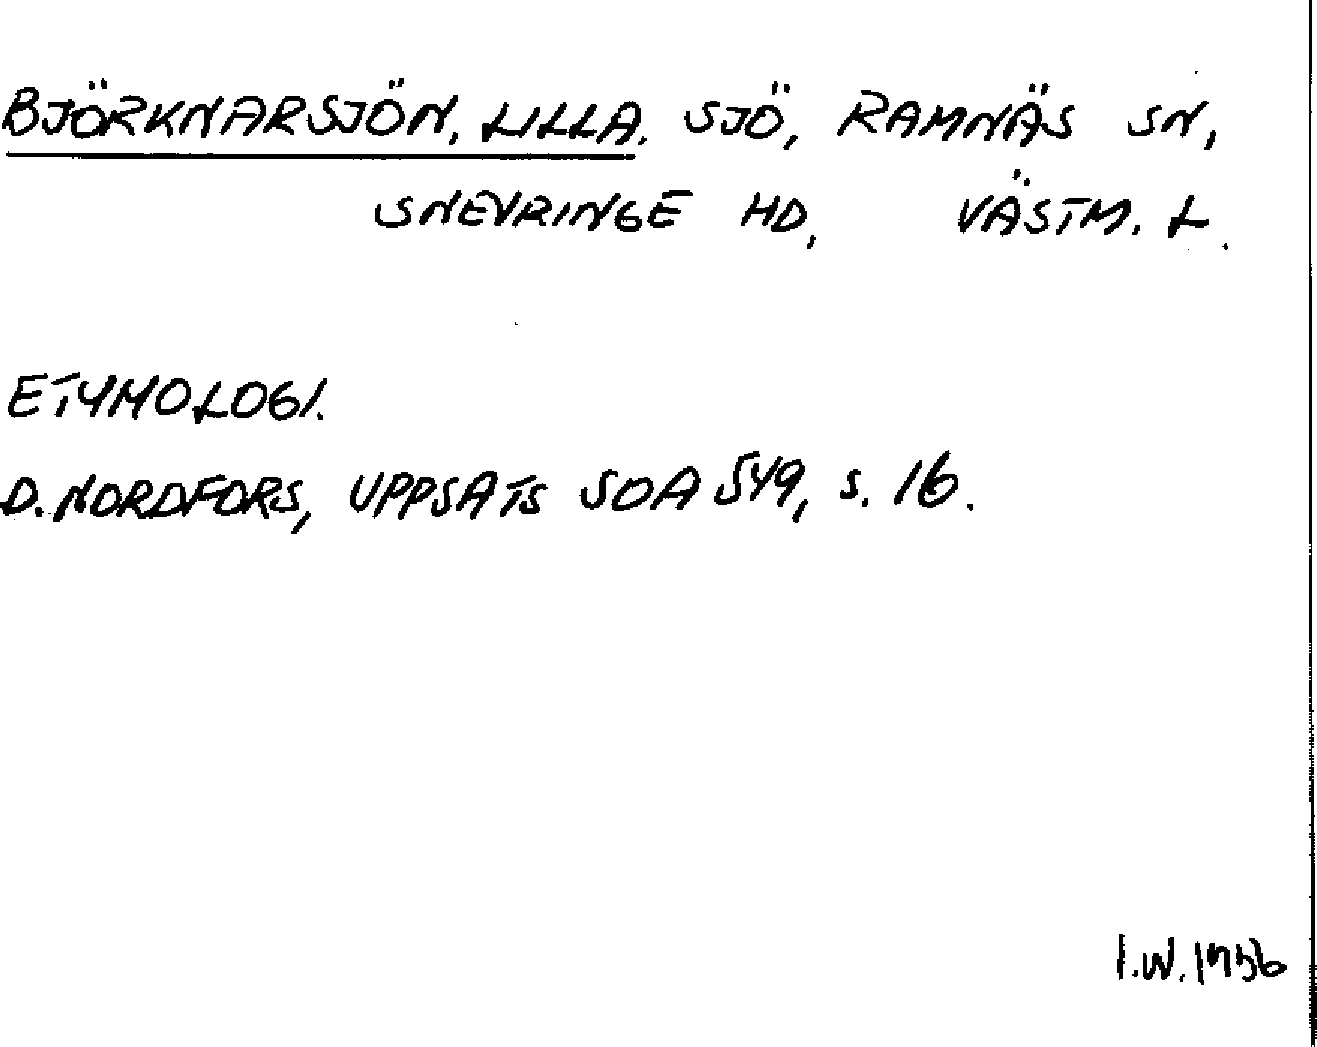 BJÖRKNARSJÖN, LILLA. SJÖ, RAMNÄS SN,
SNEVRINGE HD, VÄSTM. L.
ETYMOLOGI.
D. NORDFORS, UPPSATS SOA 549, s. 16.
I.W. 1956